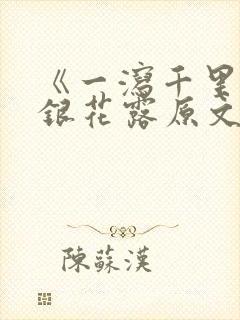 《一瀉千里
銀花露原文
陳蘇漢